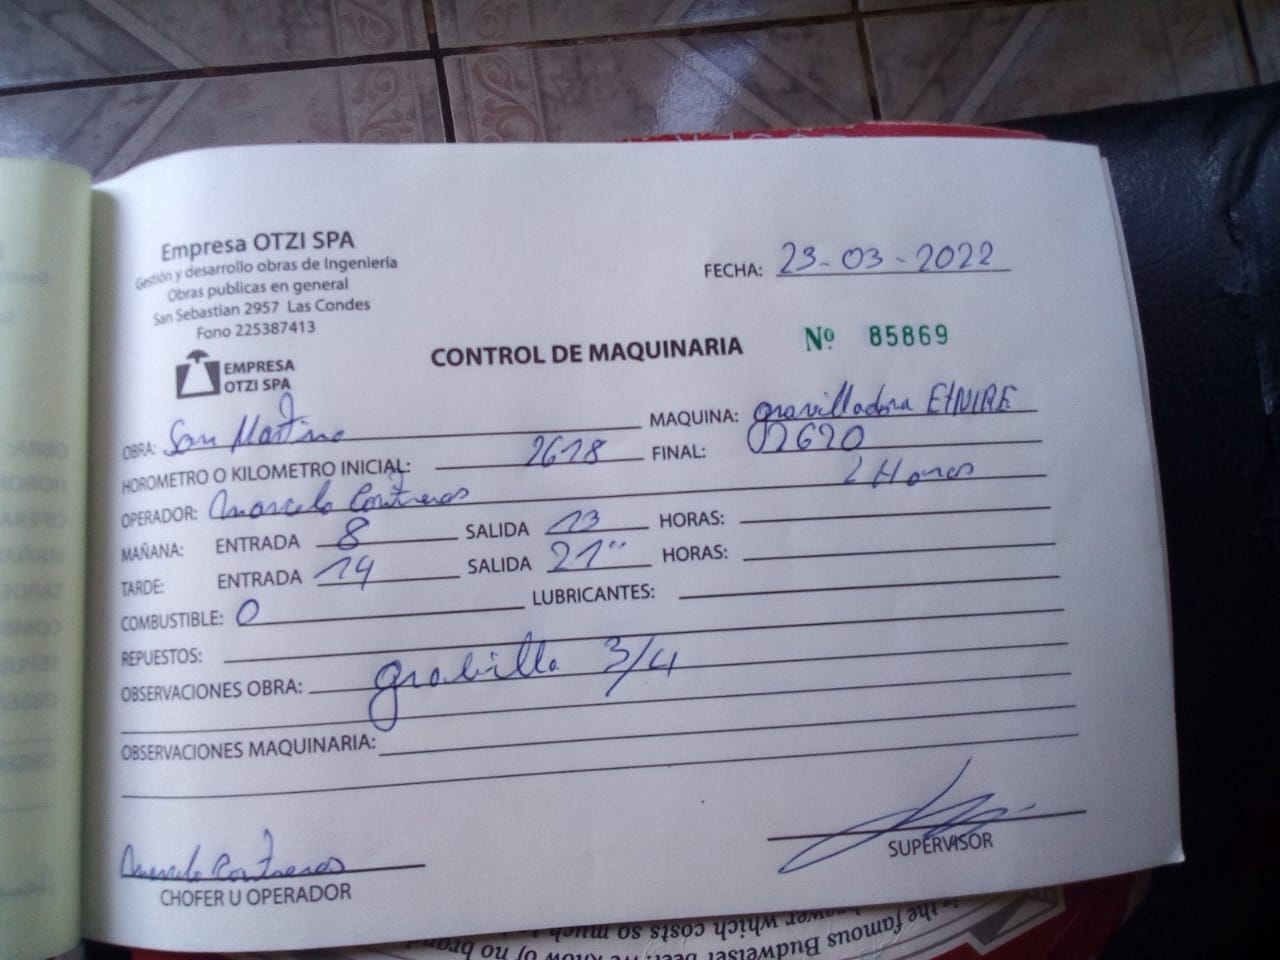 Empresa OTZI SPA
Gestión y desarrollo obras de Ingeniería
Obras publicas en general
San Sebastian 2957 Las Condes
Fono 225387413
EMPRESA
OTZI SPA
FECHA: 23-03-2022
CONTROL DE MAQUINARIA
Nº 85869
OBRA: San Martino MAQUINA: gravilladora ETNIRE
HOROMETRO O KILOMETRO INICIAL: 2618 FINAL: 02620
OPERADOR: Marcelo Contreras 2 Horas
MAÑANA: ENTRADA 8 SALIDA 13 HORAS:
TARDE: ENTRADA 14 SALIDA 21 HORAS:
COMBUSTIBLE: 0 LUBRICANTES:
REPUESTOS:
OBSERVACIONES OBRA: grabilla 3/4
OBSERVACIONES MAQUINARIA:
Marcelo Contreras
CHOFER U OPERADOR
SUPERVISOR
the famous Budweiser beer. We know of no brand
which costs so much